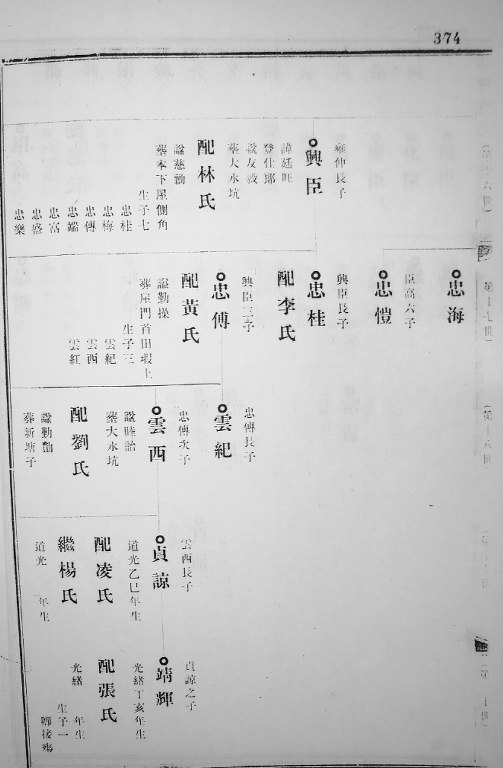 374
興臣
雍仲長子
諱廷旺
登仕郎
諡友毅
葬大水坑
配林氏
諡慈勤
葬本下壓側角
生子七
忠桂
忠梅
忠傳
忠鏞
忠富
忠盛
忠樂
忠海
忠愷
臣高六子
忠桂
興臣長子
配李氏
忠傳
興臣三子
配黃氏
諡勤操
葬屋門首田塅上
生子三
雲紀
雲西
雲紅
雲紀
忠傳長子
雲西
忠傳次子
諡睦詒
葬大水坑
配劉氏
諡勤勉
葬新塘子
貞諒
雲西長子
道光乙巳年生
配凌氏
繼楊氏
道光 年生
靖輝
貞諒之子
光緒丁亥年生
配張氏
光緒 年生
生子一
聯接